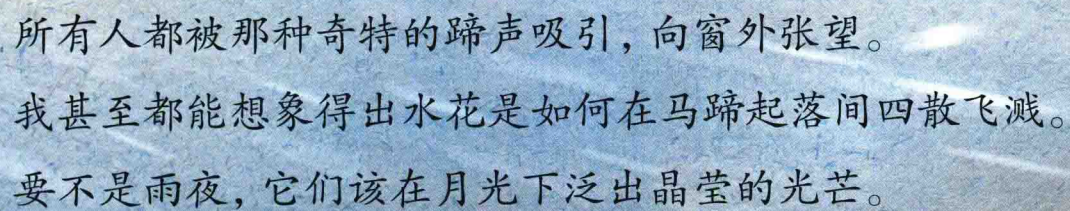 所有人都被那种奇特的蹄声吸引，向窗外张望。
我甚至都能想象得出水花是如何在马蹄起落间四散飞溅。
要不是雨夜，它们该在月光下泛出晶莹的光芒。